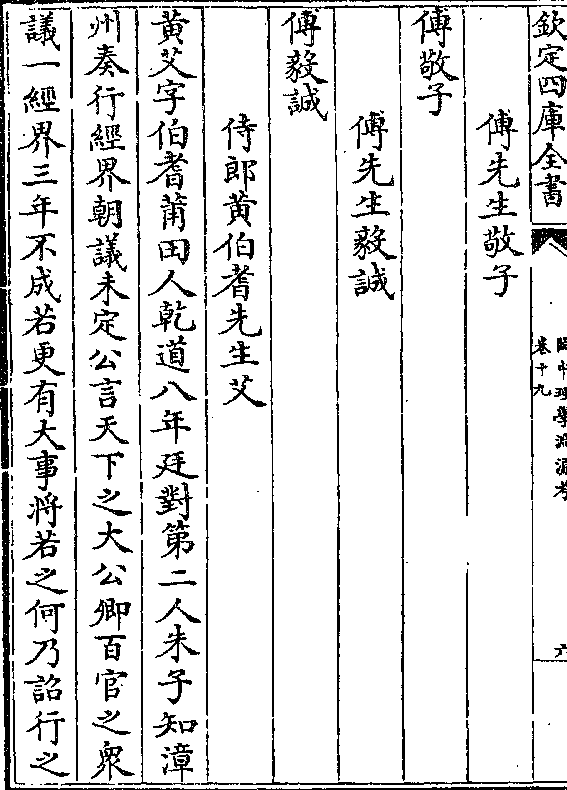 欽定四庫全書
卷十九
傅先生敬子
傅敬子
傅先生毅誠
傅毅誠
侍郎黄伯耆先生艾
黄艾字伯耆莆田人乾道八年廷對第二人朱子知漳
州奏行經界朝議未定公言天下之大公卿百官之衆
議一經界三年不成若更有大事將若之何乃詔行之